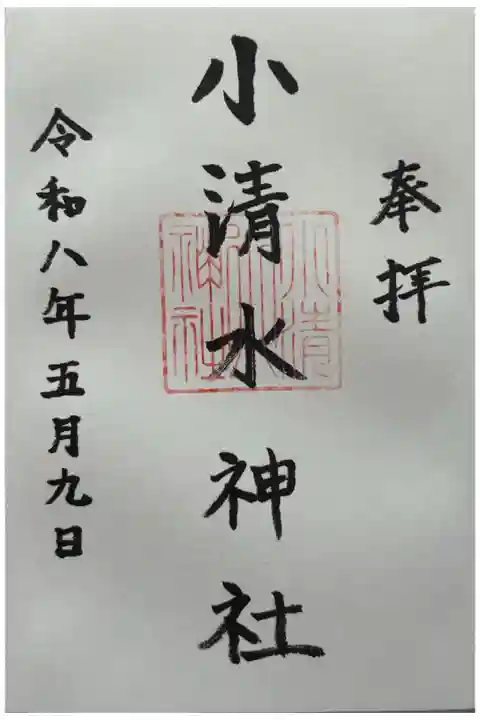 奉拝
小清水神社
令和八年五月九日
小清水神社